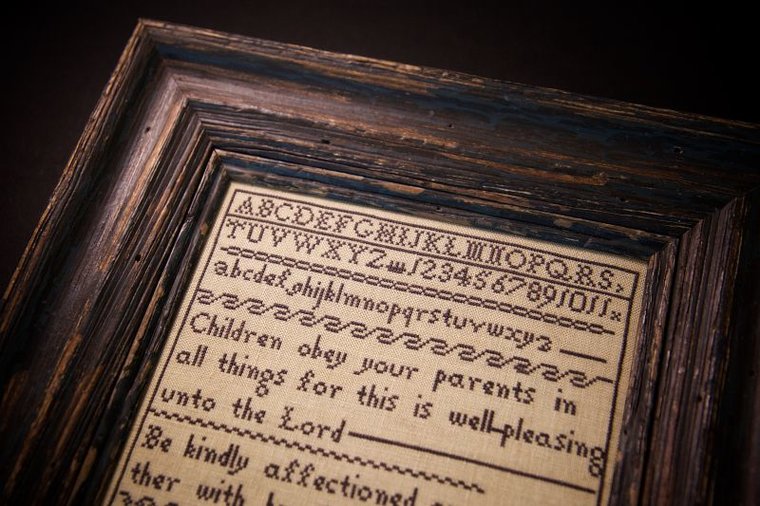 ABCDEFGHIJKLMNOPQRS
TUVWXYZ 1234567891011
abcdefghijklmnopqrstuvwxyz
Children obey your parents in
all things for this is well-pleasing
unto the Lord
Be kindly affectioned
ther with